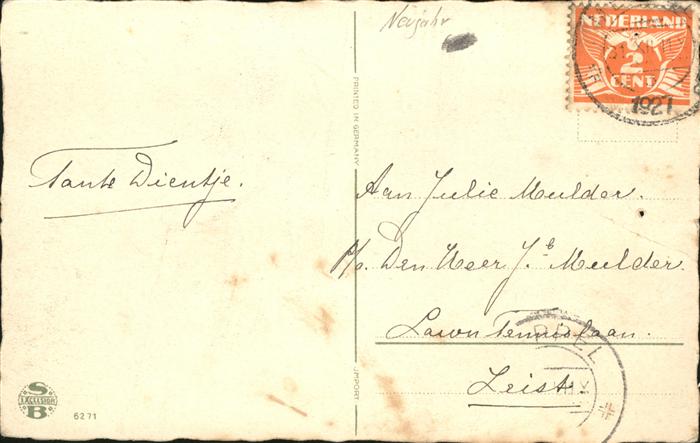 Neujahr
NEDERLAND
2
CENT
1927
PRINTED IN GERMANY
Tante Dientje.
Aan Julie Mulder.
p/a. Den Heer J. Mulder.
Lawn Tennislaan.
Zeist
PPEL
IMPORT
S
EXCELSIOR
B
5271